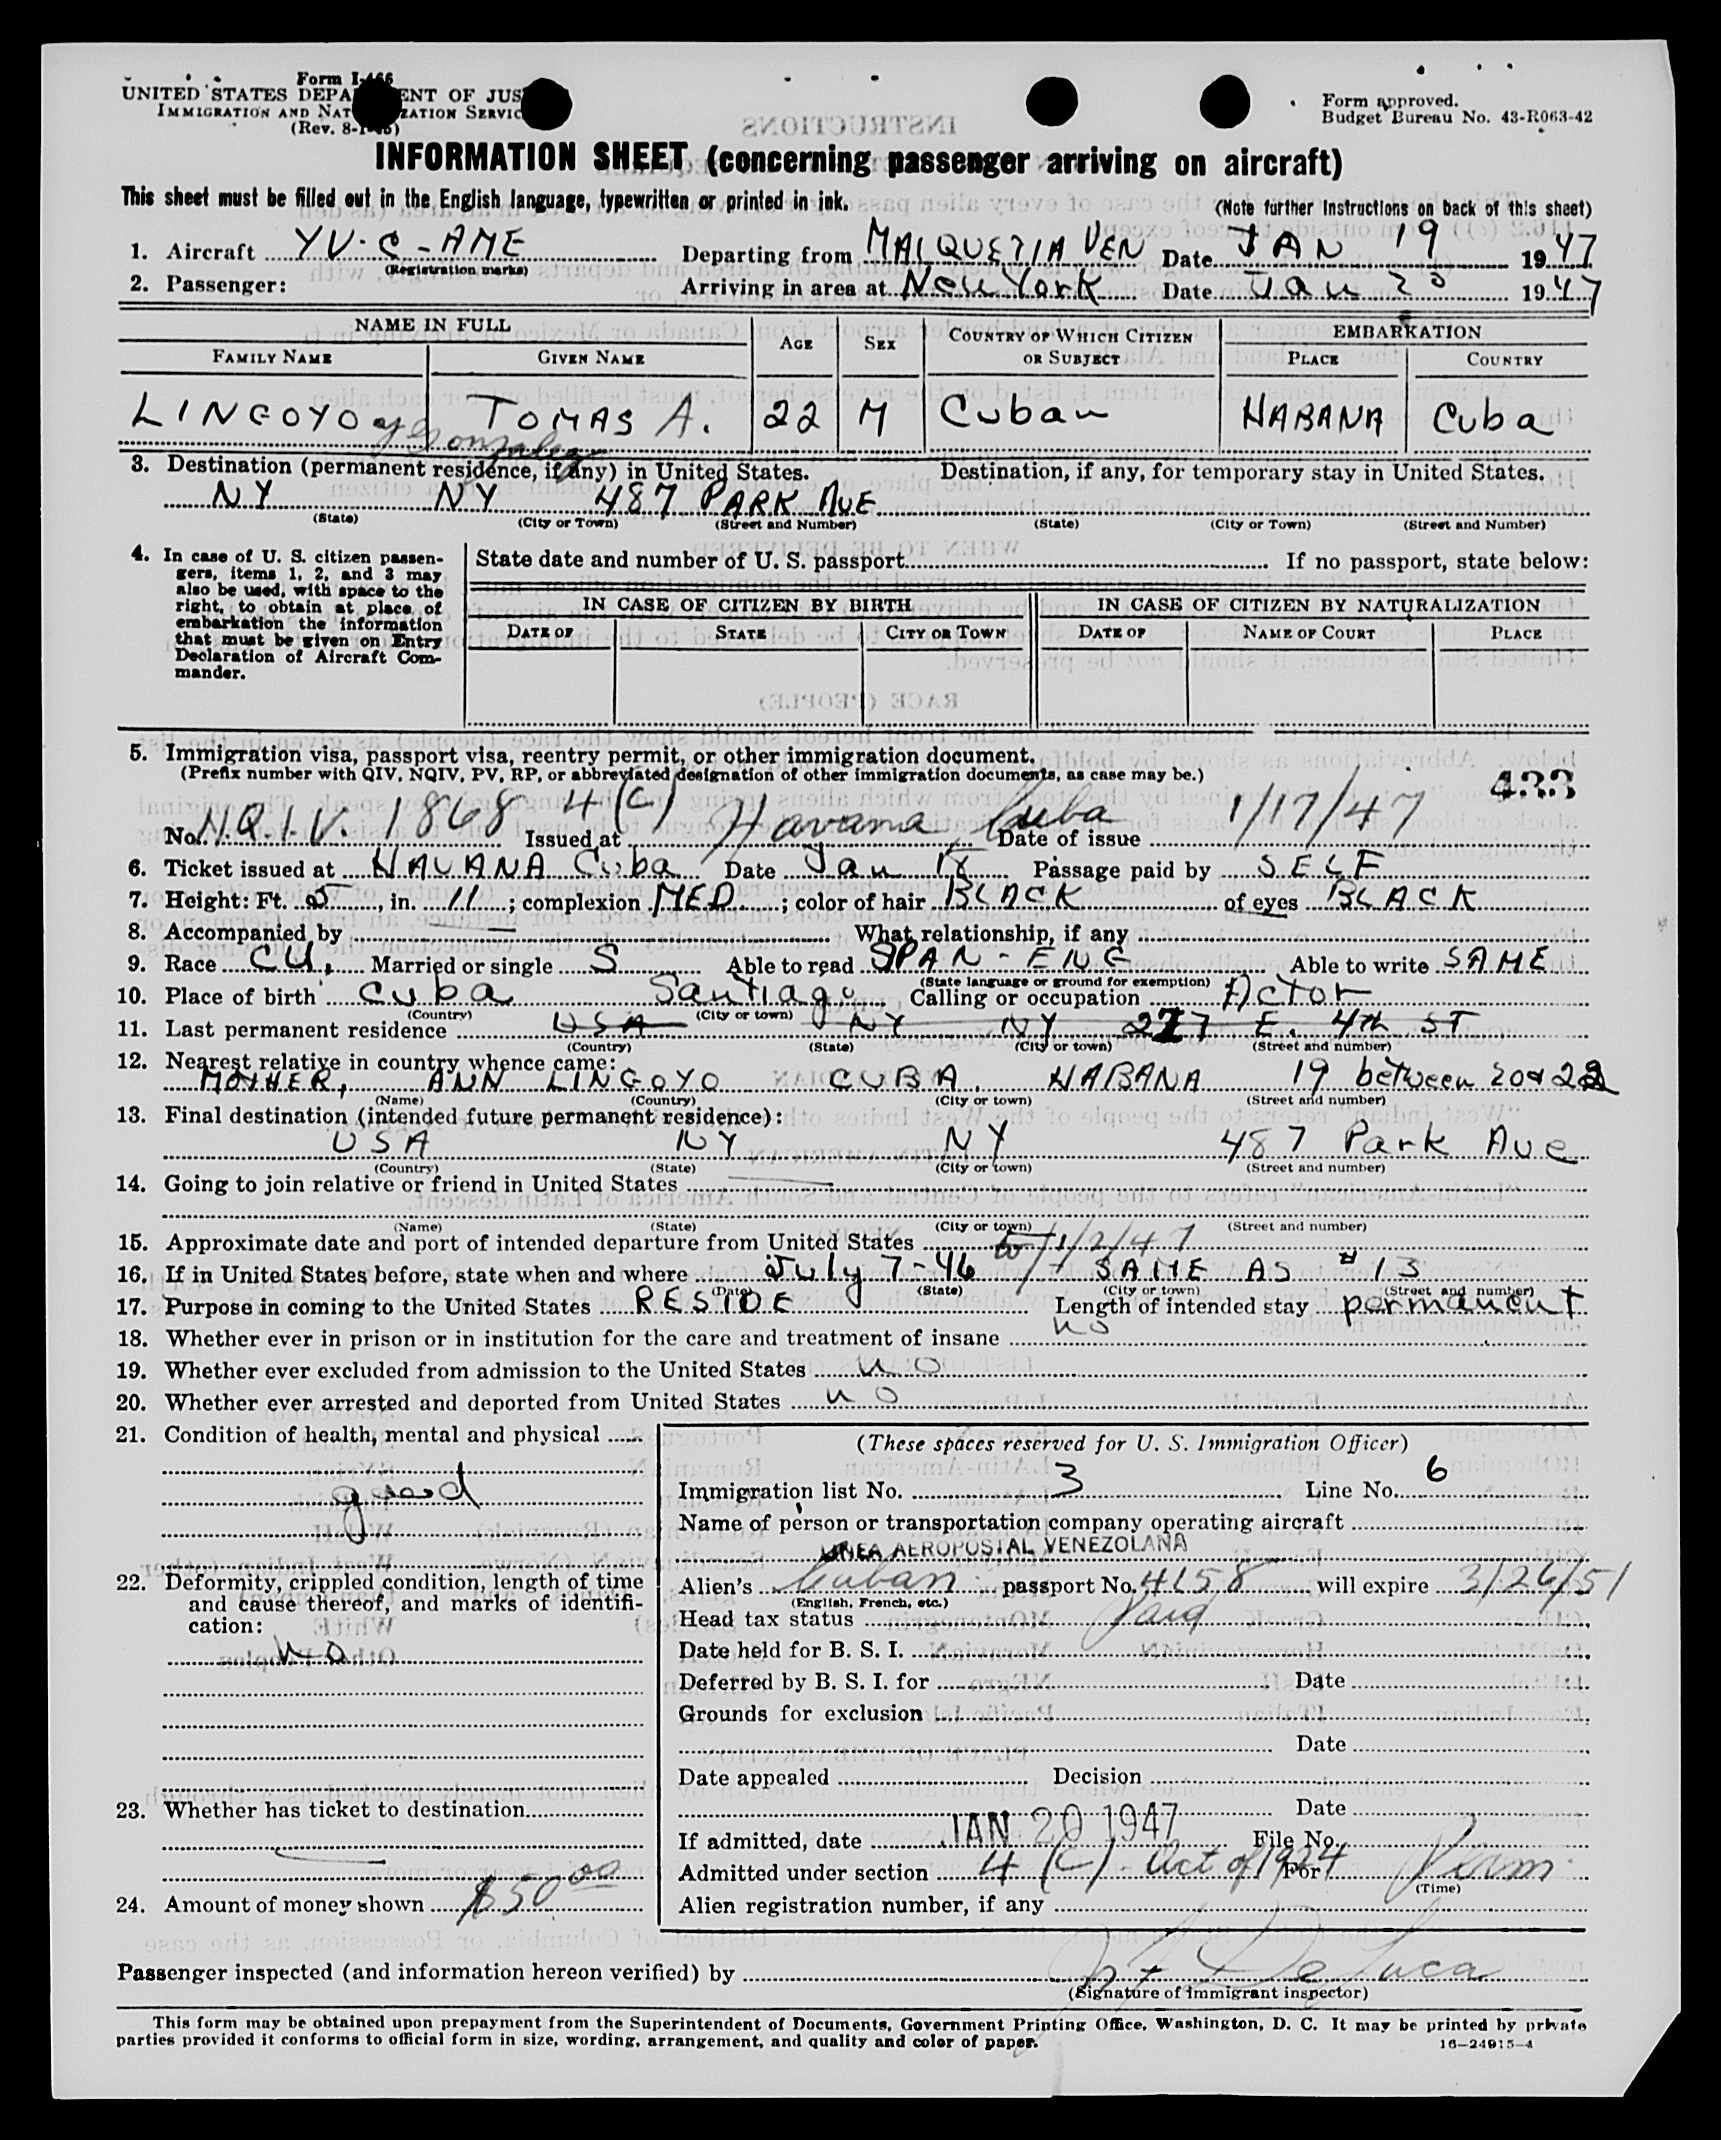 Form I-466
UNITED STATES DEPARTMENT OF JUSTICE
IMMIGRATION AND NATURALIZATION SERVICE
(Rev. 8-1-45)
Form approved.
Budget Bureau No. 43-R063-42
INFORMATION SHEET (concerning passenger arriving on aircraft)
This sheet must be filled out in the English language, typewritten or printed in ink.
(Note further instructions on back of this sheet)
1. Aircraft YV-C-AME Departing from MALQUETIA VEN Date JAN 19 1947
(Registration marks)
2. Passenger: Arriving in area at New York Date Jan 20 1947
NAME IN FULL AGE SEX COUNTRY OF WHICH CITIZEN OR SUBJECT EMBARKATION
FAMILY NAME GIVEN NAME PLACE COUNTRY
LINGOYO y Gonzalez TOMAS A. 22 M Cuban HABANA Cuba
3. Destination (permanent residence, if any) in United States. Destination, if any, for temporary stay in United States.
NY NY 487 PARK AVE
(State) (City or Town) (Street and Number) (State) (City or Town) (Street and Number)
4. In case of U. S. citizen passengers, items 1, 2, and 3 may also be used, with space to the right, to obtain at place of embarkation the information that must be given on Entry Declaration of Aircraft Commander.
State date and number of U. S. passport If no passport, state below:
IN CASE OF CITIZEN BY BIRTH IN CASE OF CITIZEN BY NATURALIZATION
DATE OF STATE CITY OR TOWN DATE OF NAME OF COURT PLACE
5. Immigration visa, passport visa, reentry permit, or other immigration document.
(Prefix number with QIV, NQIV, PV, RP, or abbreviated designation of other immigration documents, as case may be.)
433
No. N.Q.I.V. 1868 4(c) Issued at Havana Cuba Date of issue 1/17/47
6. Ticket issued at HAVANA Cuba Date Jan 18 Passage paid by SELF
7. Height: Ft. 5, in. 11; complexion MED; color of hair BLACK of eyes BLACK
8. Accompanied by — What relationship, if any
9. Race CU. Married or single S Able to read SPAN-ENG Able to write SAME
(State language or ground for exemption)
10. Place of birth Cuba Santiago Calling or occupation Actor
(Country) (City or town)
11. Last permanent residence USA NY NY 277 E. 4th ST
(Country) (State) (City or town) (Street and number)
12. Nearest relative in country whence came:
MOTHER, ANN LINGOYO CUBA. HABANA 19 between 20 & 22
(Name) (Country) (City or town) (Street and number)
13. Final destination (intended future permanent residence):
USA NY NY 487 Park Ave
(Country) (State) (City or town) (Street and number)
14. Going to join relative or friend in United States —
(Name) (State) (City or town) (Street and number)
15. Approximate date and port of intended departure from United States
16. If in United States before, state when and where July 7-46 to 1/2/47 SAME AS #13
(Date) (State) (City or town) (Street and number)
17. Purpose in coming to the United States RESIDE Length of intended stay permanent
18. Whether ever in prison or in institution for the care and treatment of insane no
19. Whether ever excluded from admission to the United States no
20. Whether ever arrested and deported from United States no
21. Condition of health, mental and physical
good
22. Deformity, crippled condition, length of time and cause thereof, and marks of identification:
no
23. Whether has ticket to destination
—
24. Amount of money shown $50 00
(These spaces reserved for U. S. Immigration Officer)
Immigration list No. 3 Line No. 6
Name of person or transportation company operating aircraft
LINEA AEROPOSTAL VENEZOLANA
Alien's Cuban passport No. 4158 will expire 3/26/51
(English, French, etc.)
Head tax status Paid
Date held for B. S. I.
Deferred by B. S. I. for Date
Grounds for exclusion
Date
Date appealed Decision
Date
If admitted, date JAN 20 1947 File No.
Admitted under section 4(c) - Act of 1924 For Perm.
(Time)
Alien registration number, if any
Passenger inspected (and information hereon verified) by De Luca
(Signature of immigrant inspector)
This form may be obtained upon prepayment from the Superintendent of Documents, Government Printing Office, Washington, D. C. It may be printed by private
parties provided it conforms to official form in size, wording, arrangement, and quality and color of paper.
16-24915-4